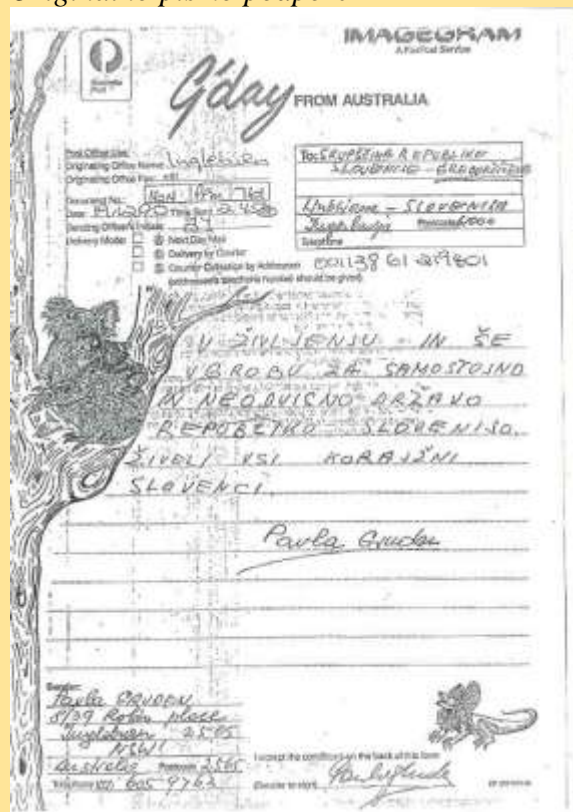 IMAGEGRAM
A FaxPost Service
Australia
Post
G'day FROM AUSTRALIA
Post Office Use
Originating Office Name Ingleburn
Originating Office Fax
Document No.
Date Time Sent
Sending Officer's Initials
Delivery Mode
Next Day Mail
Delivery by Courier
Counter Collection by Addressee
(addressee's telephone number should be given)
To: SKUPŠČINA REPUBLIKE
SLOVENIJE
Ljubljana - SLOVENIJA
Postcode
Telephone
V ŽIVLJENJU IN ŠE
V GROBU ZA SAMOSTOJNO
IN NEODVISNO DRŽAVO
REPUBLIKO SLOVENIJO.
ŽIVELI VSI KORAJŽNI
SLOVENCI.
Pavla Gruden
Sender:
Pavla GRUDEN
5/39 Robin place
Ingleburn 2565
NSW
Australia Postcode 2565
Telephone 605
I accept the conditions on the back of this form
(Sender to sign)